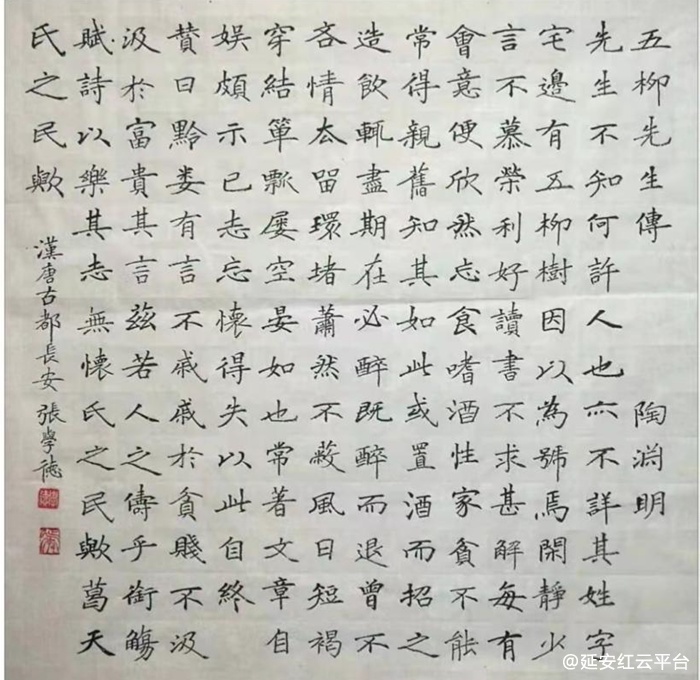 五柳先生傳 陶渊明
先生不知何許人也亦不詳其姓字
宅邊有五柳樹因以為號焉閑靜少
言不慕榮利好讀書不求甚解每有
會意便欣然忘食嗜酒性家貧不能
常得親舊知其如此或置酒而招之
造飲輒盡期在必醉既醉而退曾不
吝情去留環堵蕭然不蔽風日短褐
穿結簞瓢屢空晏如也常著文章自
娛頗示己志忘懷得失以此自終
贊曰黔婁有言不戚戚於貧賤不汲
汲於富貴其言茲若人之儔乎銜觴
賦詩以樂其志無懷氏之民歟葛天
氏之民歟
漢唐古都長安張學德
@延安红云平台